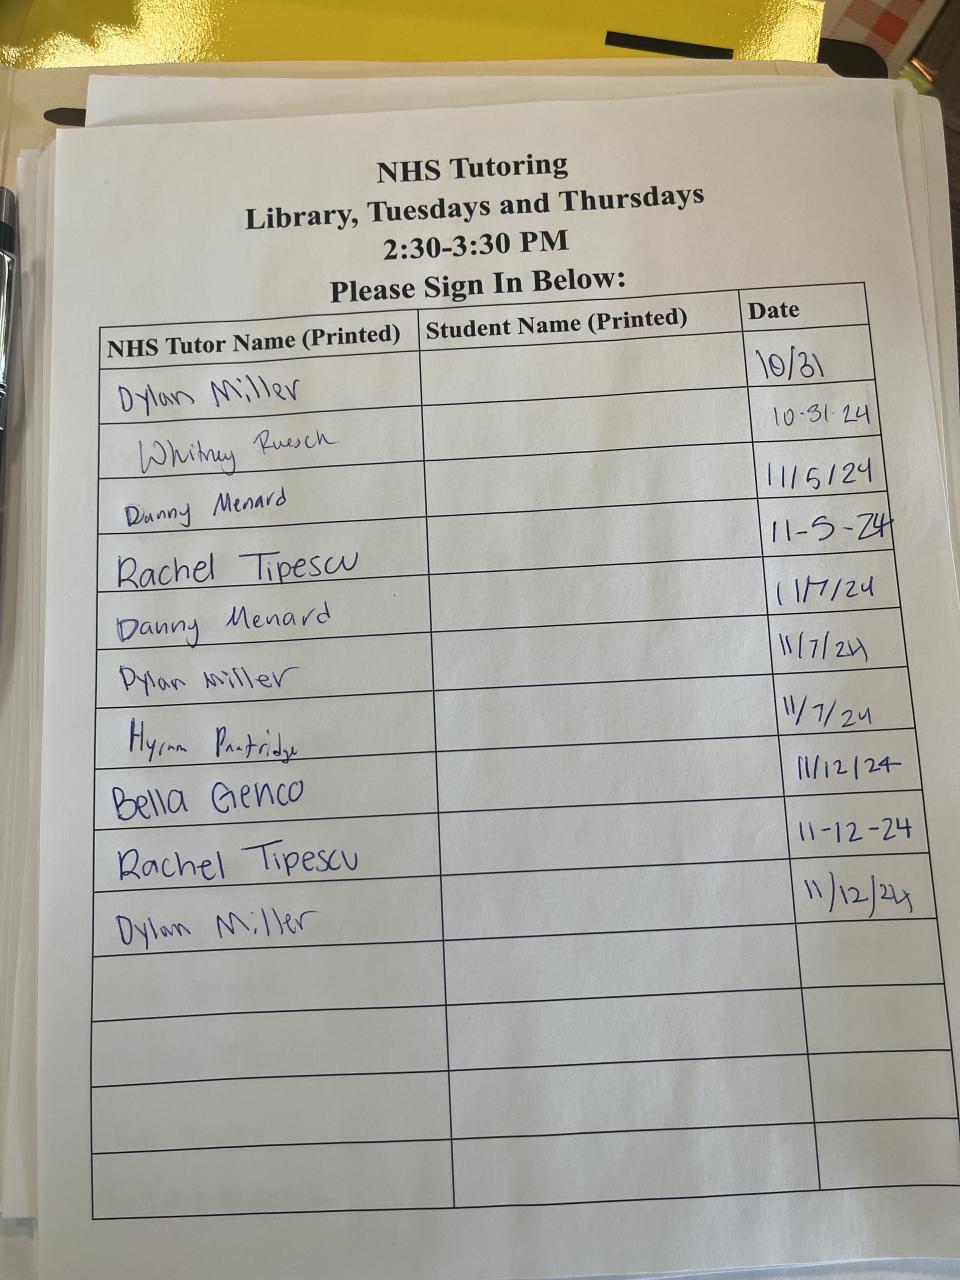 NHS Tutoring
Library, Tuesdays and Thursdays
2:30-3:30 PM
Please Sign In Below:
NHS Tutor Name (Printed) Student Name (Printed) Date
Dylan Miller 10/31
Whitney Ruesch 10-31-24
Danny Menard 11/5/24
Rachel Tipescu 11-5-24
Danny Menard 11/7/24
Dylan Miller 11/7/24
Partridge 11/7/24
Bella Genco 11/12/24
Rachel Tipescu 11-12-24
Dylan Miller 11/12/24